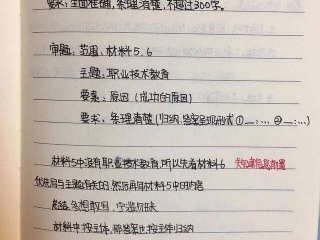 要求：全面准确，条理清楚，不超过300字。
审题：范围：材料5.6
主题：职业技术教育
要素：原因（成功的原因）
要求：条理清楚（归纳、答案呈现形式①_:…②_:…）
材料5中没有职业技术教育，所以先看材料6
优先写与主题有关的，然后再写材料5中的内容
总结：多想敢写，宁滥勿缺
材料中按主体，那答案也按主体归纳